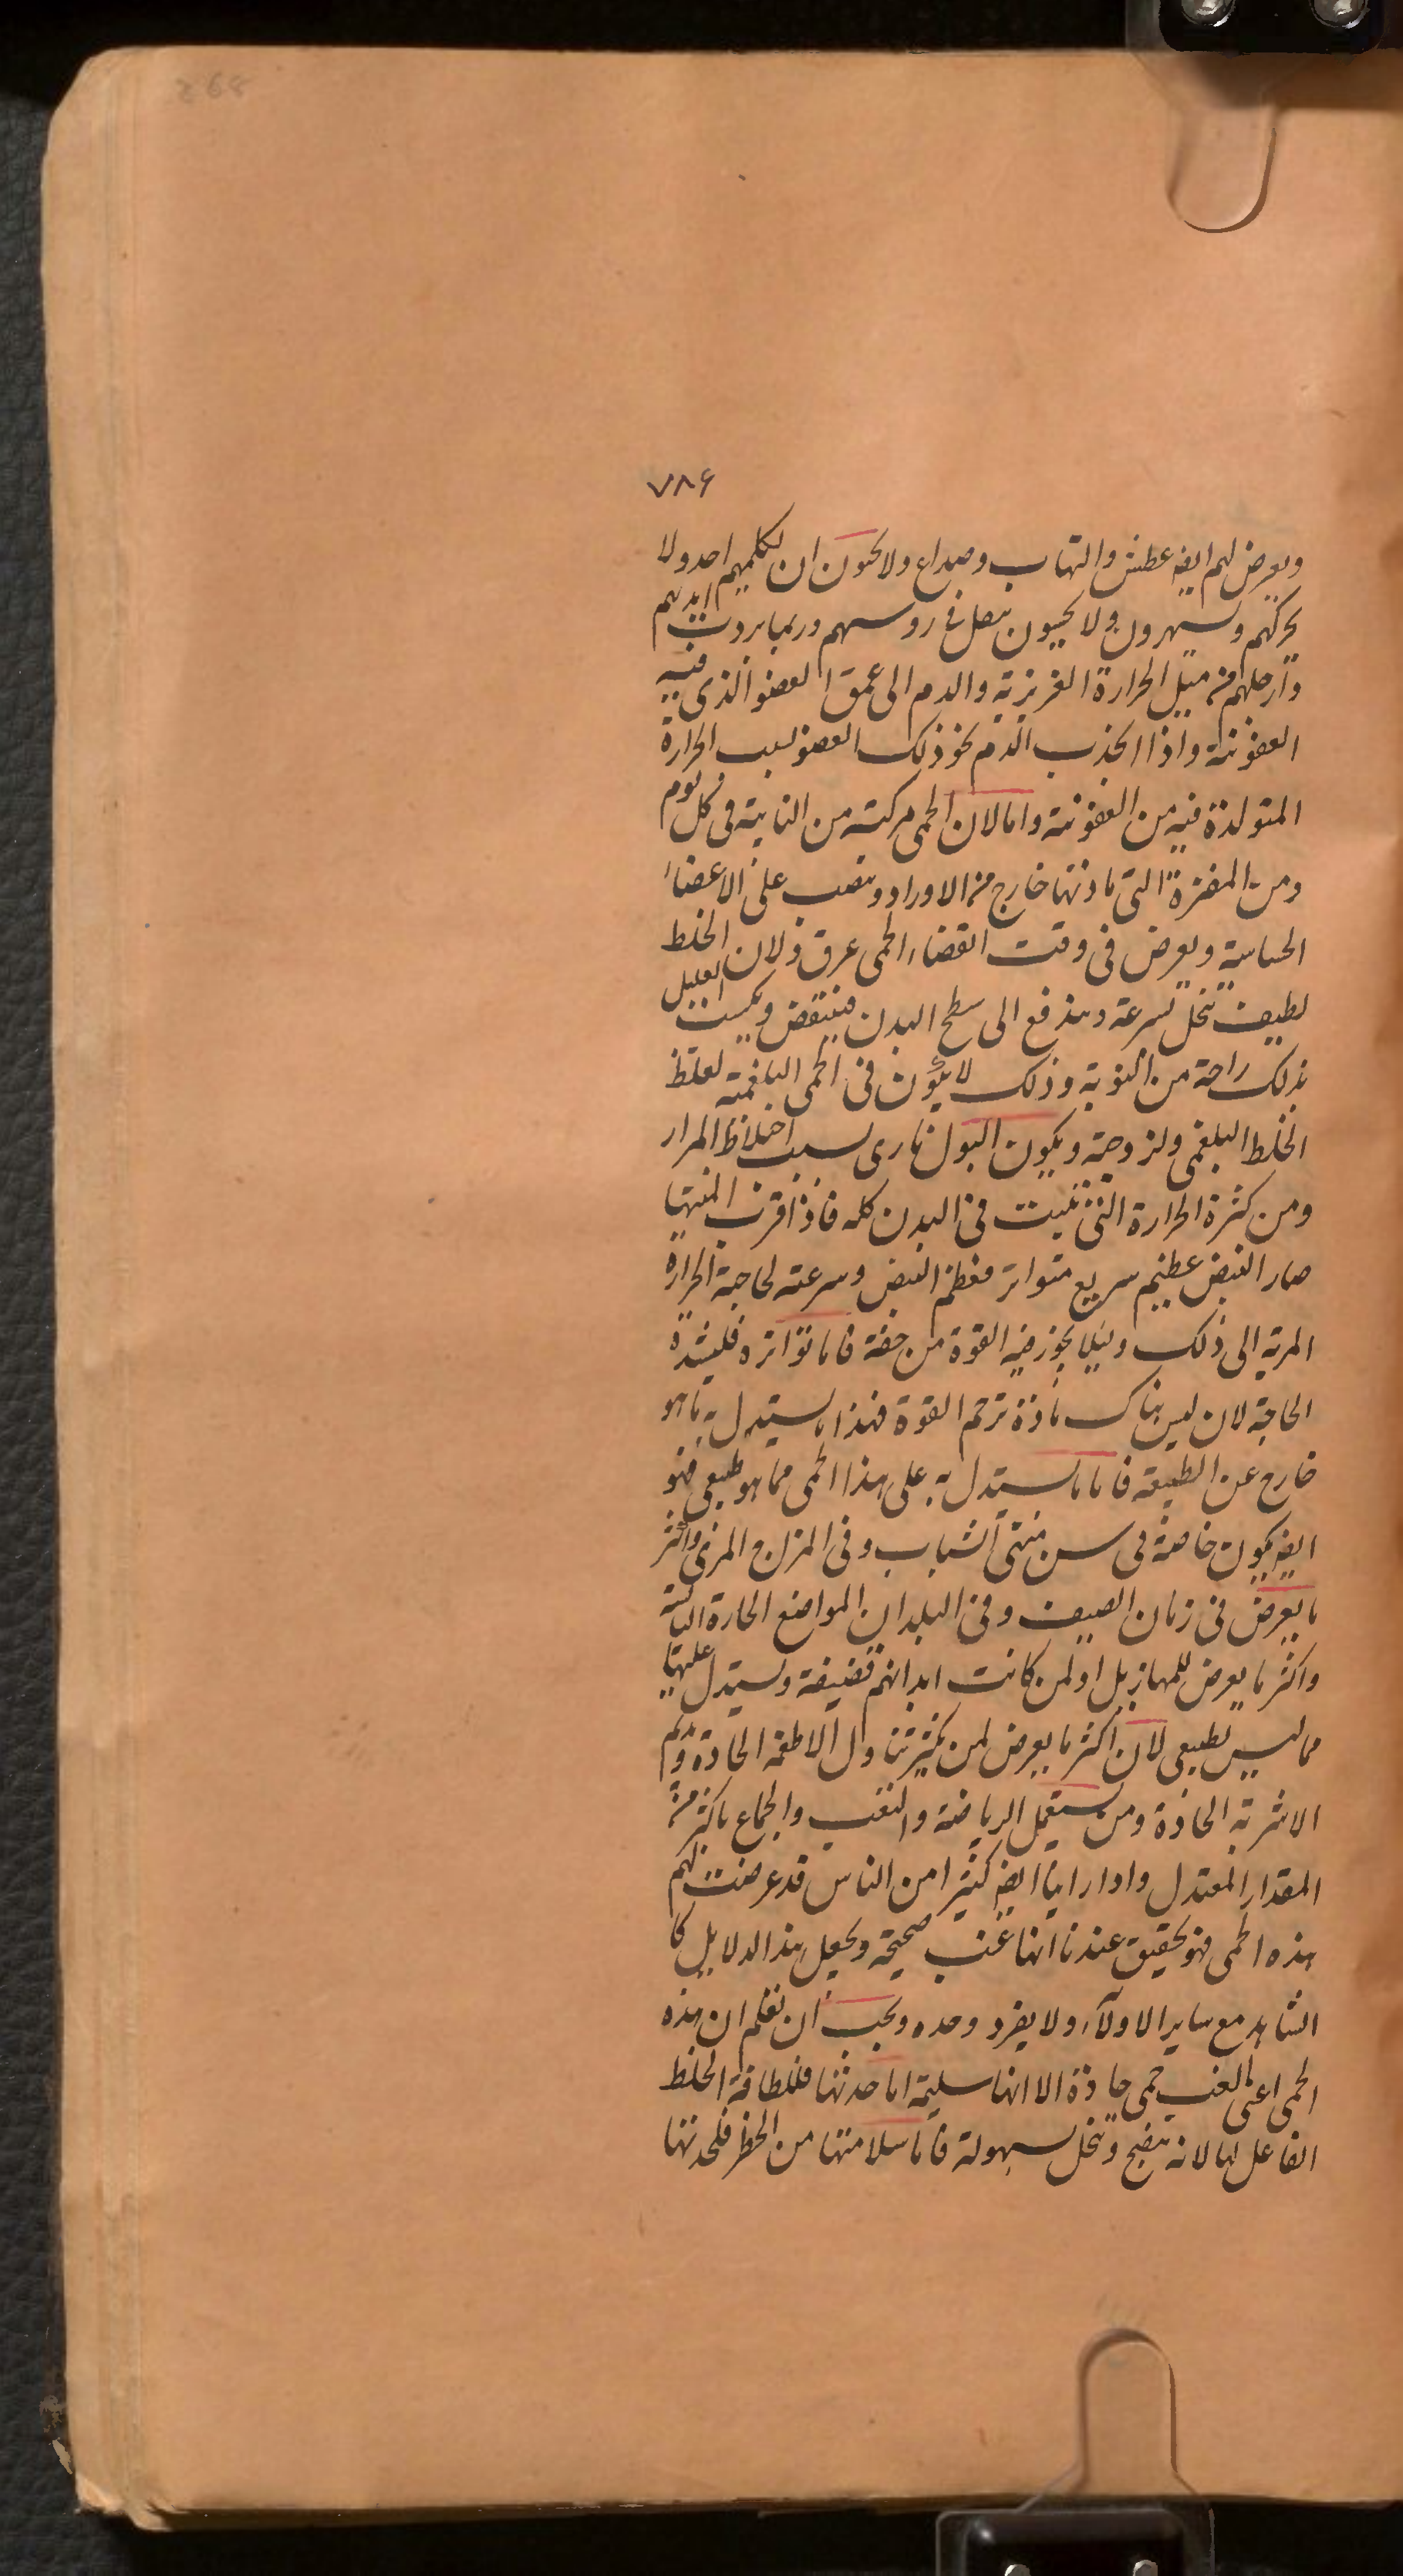 268
٧٨۶
ويعرض لهم ايضه عطش والتهاب وصداع ولا يحبون ان يكلميهم احد ولا
يحركهم ويسهرون ولا يحبون بنصل فى روسهم وربما بردت ايديهم
وارجلهم من ميل الحرارة الغريزية والدم الى عمق العضو الذى فيه
العفونة واذا انجذب الدم نحو ذلك العضو بسبب الحرارة
المتولدة فيه من العفونة واما لان الحمى مركبته من النايبة فى كل يوم
ومن المفترة التى مادتها خارج من الاوراد وتنصب على الاعضاء
الحساسة ويعرض فى وقت انقضاء الحمى عرق ولان الخلط
لطيف تنحل بسرعة ويندفع الى سطح البدن فينتقض ويكسب العليل
بذلك راحة من النوبة وذلك لا يكون فى الحمى البلغمية لغلظ
الخلط البلغمى ولزوجته ويكون البول نارى بسبب اختلاط المرار
ومن كثرة الحرارة التى تثبت فى البدن كله فاذا قرب المنتها
صار النبض عظيم سريع متواتر فعظم النبض وسرعته لحاجة الحرارة
المرية الى ذلك وليلا يجوز فيه القوة من خفة فاما تواتره فلشدة
الحاجة لان ليس هناك مادة ترحم القوة فهذا ما يستدل به ما هو
خارج عن الطبيعة فاما ما يستدل به على هذا الحمى مما هو طبيعى فهو
ايضه يكون خاصة فى سن منتهى الشباب وفى المزاج المرى واكثر
ما يعرض فى زمان الصيف وفى البلدان المواضع الحارة اليابسة
واكثر ما يعرض للمهازيل او لمن كانت ابدانهم قضيفة ويستدل عليها
مما ليس بطبيعى لان اكثر ما يعرض لمن يكثر تناول الاطعمة الحادة
الاشربة الحادة ومن يستعمل الرياضة والتعب والجماع باكثر من
المقدار المعتدل واذا راينا ايضه كثيرا من الناس قد عرضت لهم
هذه الحمى فهو تحقيق عندنا انها غب صحيحة ويجعل هذا الدلايل كا
الشاهد مع ساير الاولاء ولا يفرد وحده ويجب ان تعلم ان هذه
الحمى اعنى الغب حمى حادة الا انها سليمة اما حدتها فللطافة الخلط
الفاعل لها لانه ينضج وينحل بسهولة فاما سلامتها من الخطر فلحدتها